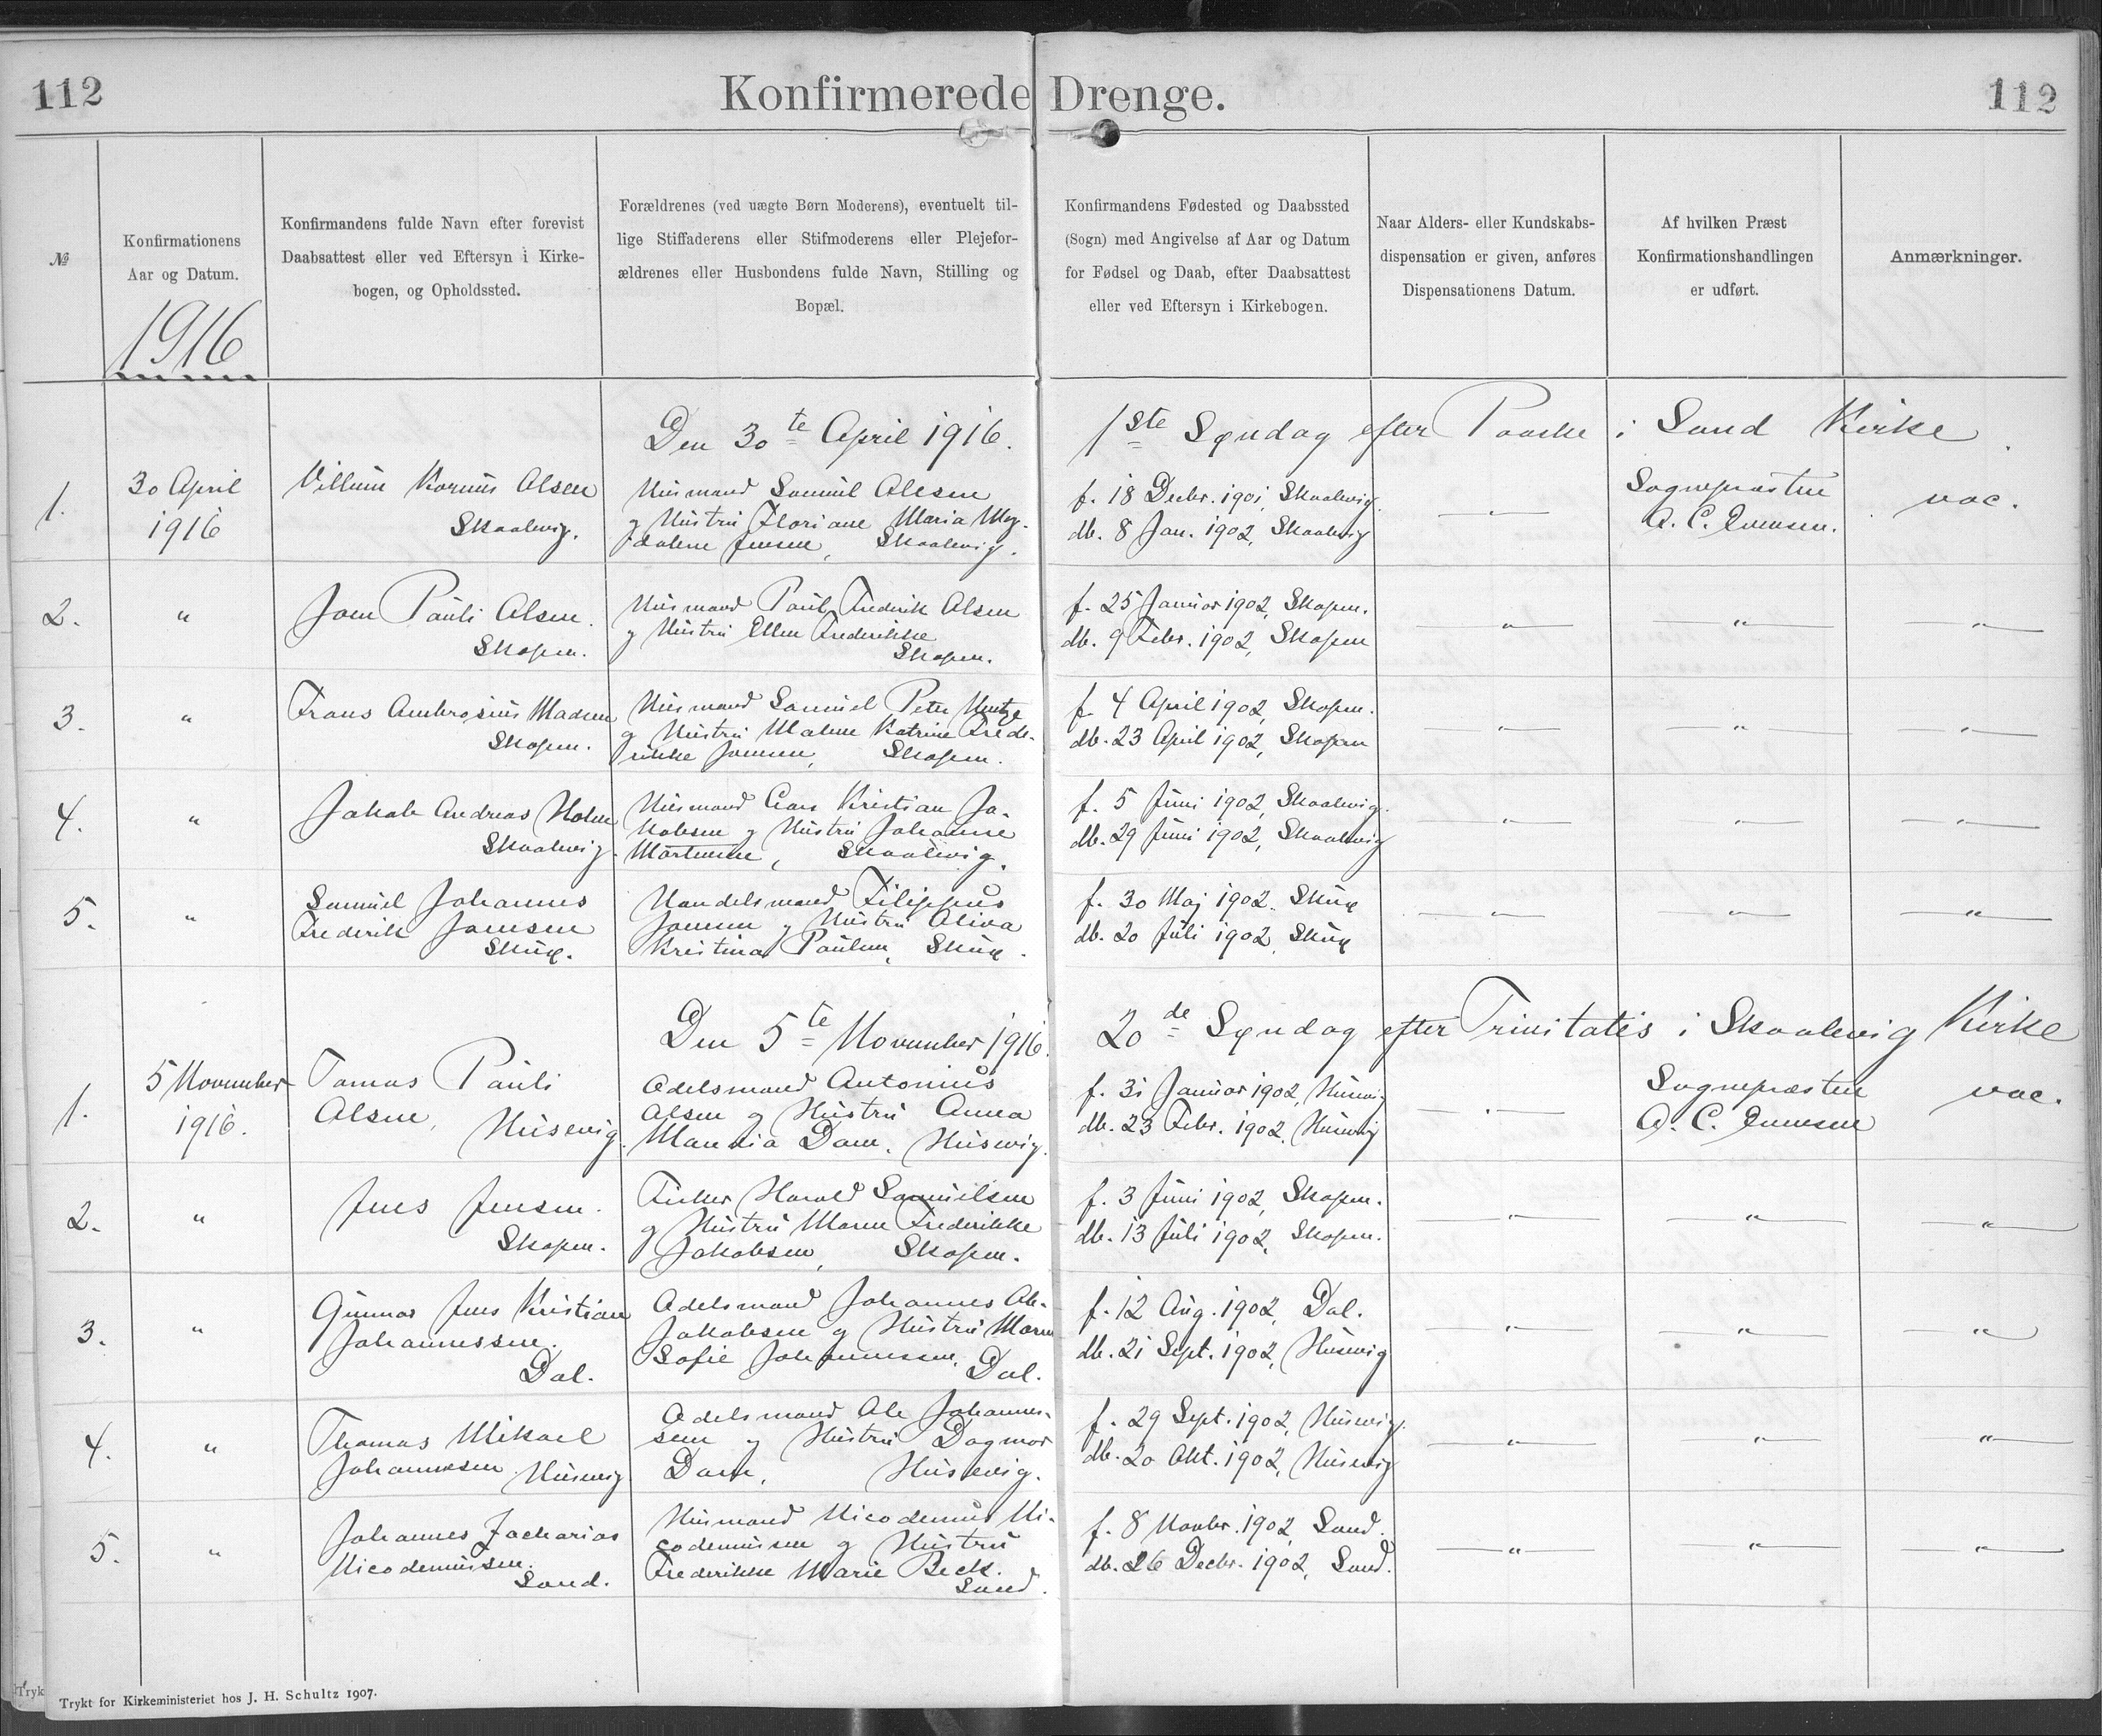 112
Konfirmerede Drenge.
112
№
Konfirmationens
Aar og Datum.
1916
Konfirmandens fulde Navn efter forevist
Daabsattest eller ved Eftersyn i Kirke-
bogen, og Opholdssted.
Forældrenes (ved uægte Børn Moderens), eventuelt til-
lige Stiffaderens eller Stifmoderens eller Plejefor-
ældrenes eller Husbondens fulde Navn, Stilling og
Bopæl.
Konfirmandens Fødested og Daabssted
(Sogn) med Angivelse af Aar og Datum
for Fødsel og Daab, efter Daabsattest
eller ved Eftersyn i Kirkebogen.
Naar Alders- eller Kundskabs-
dispensation er given, anføres
Dispensationens Datum.
Af hvilken Præst
Konfirmationshandlingen
er udført.
Anmærkninger.
Den 30te April 1916. 1ste Søndag efter Paaske i Sand Kirke.
1.
30 April
1916
Villum Olsen
Skaalevig.
Husmand Samuel Olesen
og Hustru Floriane Maria Mag-
dalene Jensen, Skaalevig.
f. 18 Decbr. 1901, Skaalevig.
db. 8 Jan. 1902, Skaalevig
—
Sognepræsten
vac.
2.
"
Joen Pauli Olsen.
Skopen.
Husmand Paul Frederik Olsen
og Hustru Ellen Frederikke
Skopen.
f. 25 Januar 1902, Skopen.
db. 9 Febr. 1902, Skopen
—"— —"— —"—
3.
"
Frans Ambrosius Madsen
Skopen.
Husmand Samuel Peter Hentze
og Hustru Malene Katrine Frede-
rikke Joensen, Skopen.
f. 4 April 1902, Skopen.
db. 23 April 1902, Skopen
—"— —"— —"—
4.
"
Jakob Andreas Holm
Skaalevig.
Husmand Claus Kristian Ja-
kobsen og Hustru Johanne
Mortensen, Skaalevig.
f. 5 Juni 1902, Skaalevig.
db. 29 Juni 1902, Skaalevig
—"— —"— —"—
5.
"
Samuel Johannes
Frederik Joensen
Skuø.
Handelsmand Filippus
Joensen og Hustru Oliva
Kristina Paulsen, Skuø.
f. 30 Maj 1902. Skuø
db. 20 Juli 1902, Skuø
—"— —"— —"—
Den 5te November 1916. 20de Søndag efter Trinitatis i Skaalevig Kirke
1.
5 November
1916.
Tomas Pauli
Olsen, Husevig.
Odelsmand Antonius
Olsen og Hustru Anna
Dam, Husevig.
f. 31 Januar 1902, Husevig
db. 23 Febr. 1902, Husevig
—"—
Sognepræsten
vac.
2.
"
Jens Jensen.
Skopen.
Fisker Harald Samuelsen
og Hustru Maren Frederikke
Jakobsen, Skopen.
f. 3 Juni 1902, Skopen.
db. 13 Juli 1902, Skopen.
—"— —"— —"—
3.
"
Gunnar Jens Kristian
Johannessen.
Dal.
Odelsmand Johannes Ole
Jakobsen og Hustru Maren
Sofie Johannessen, Dal.
f. 12 Aug. 1902, Dal.
db. 21 Sept. 1902, Husevig
—"— —"— —"—
4.
"
Thomas Mikael
Johannesen. Husevig
Odelsmand Ole Johannes-
sen og Hustru Dagmar
Dam, Husevig.
f. 29 Sept. 1902, Husevig.
db. 20 Okt. 1902, Husevig
—"— —"— —"—
5.
"
Johannes Zacharias
Nicodemussen.
Sand.
Husmand Nicodemus Ni-
codemussen og Hustru
Frederikke Marie Beck.
Sand.
f. 8 Novbr. 1902, Sand.
db. 26 Decbr. 1902, Sand.
—"— —"— —"—
Trykt for Kirkeministeriet hos J. H. Schultz 1907.